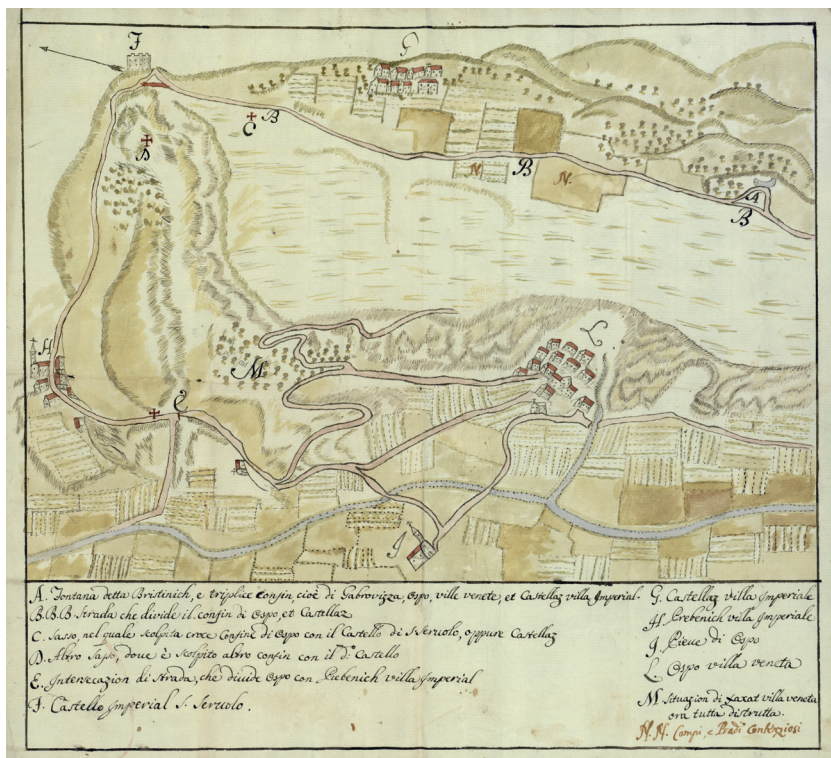 F
G
C
B
D
N
B
N.
A
B
H
L
M
E
I
A. Fontana detta Bristinich, e triplice confin, cioè di Gabrovizza, Ospo, ville venete, et Castellaz villa Imperial.
B.B.B. Strada che divide il confin di Ospo, et Castellaz
C. Sasso, nel quale scolpita croce Confine di Ospo con il Castello di S. Servolo, oppure Castellaz
D. Altro Sasso, doue è scolpito altro confin con il d.º Castello
E. Intersecazion di Strada, che diuide Ospo con Prebenich villa Imperial
F. Castello Imperial S. Servolo.
G. Castellaz villa Imperiale
H. Prebenich villa Imperiale
I. Pieue di Ospo
L. Ospo villa veneta
M Situazion di villa veneta
ora tutta distrutta.
N. N. Campi, e Pradi Contenziosi